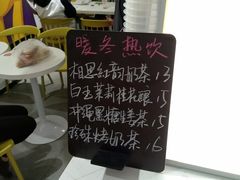 暖冬热饮
相思红韵奶茶 13
白玉茉莉桂花酿 15
冲绳黑糖姜茶 15
珍珠烤奶茶 16